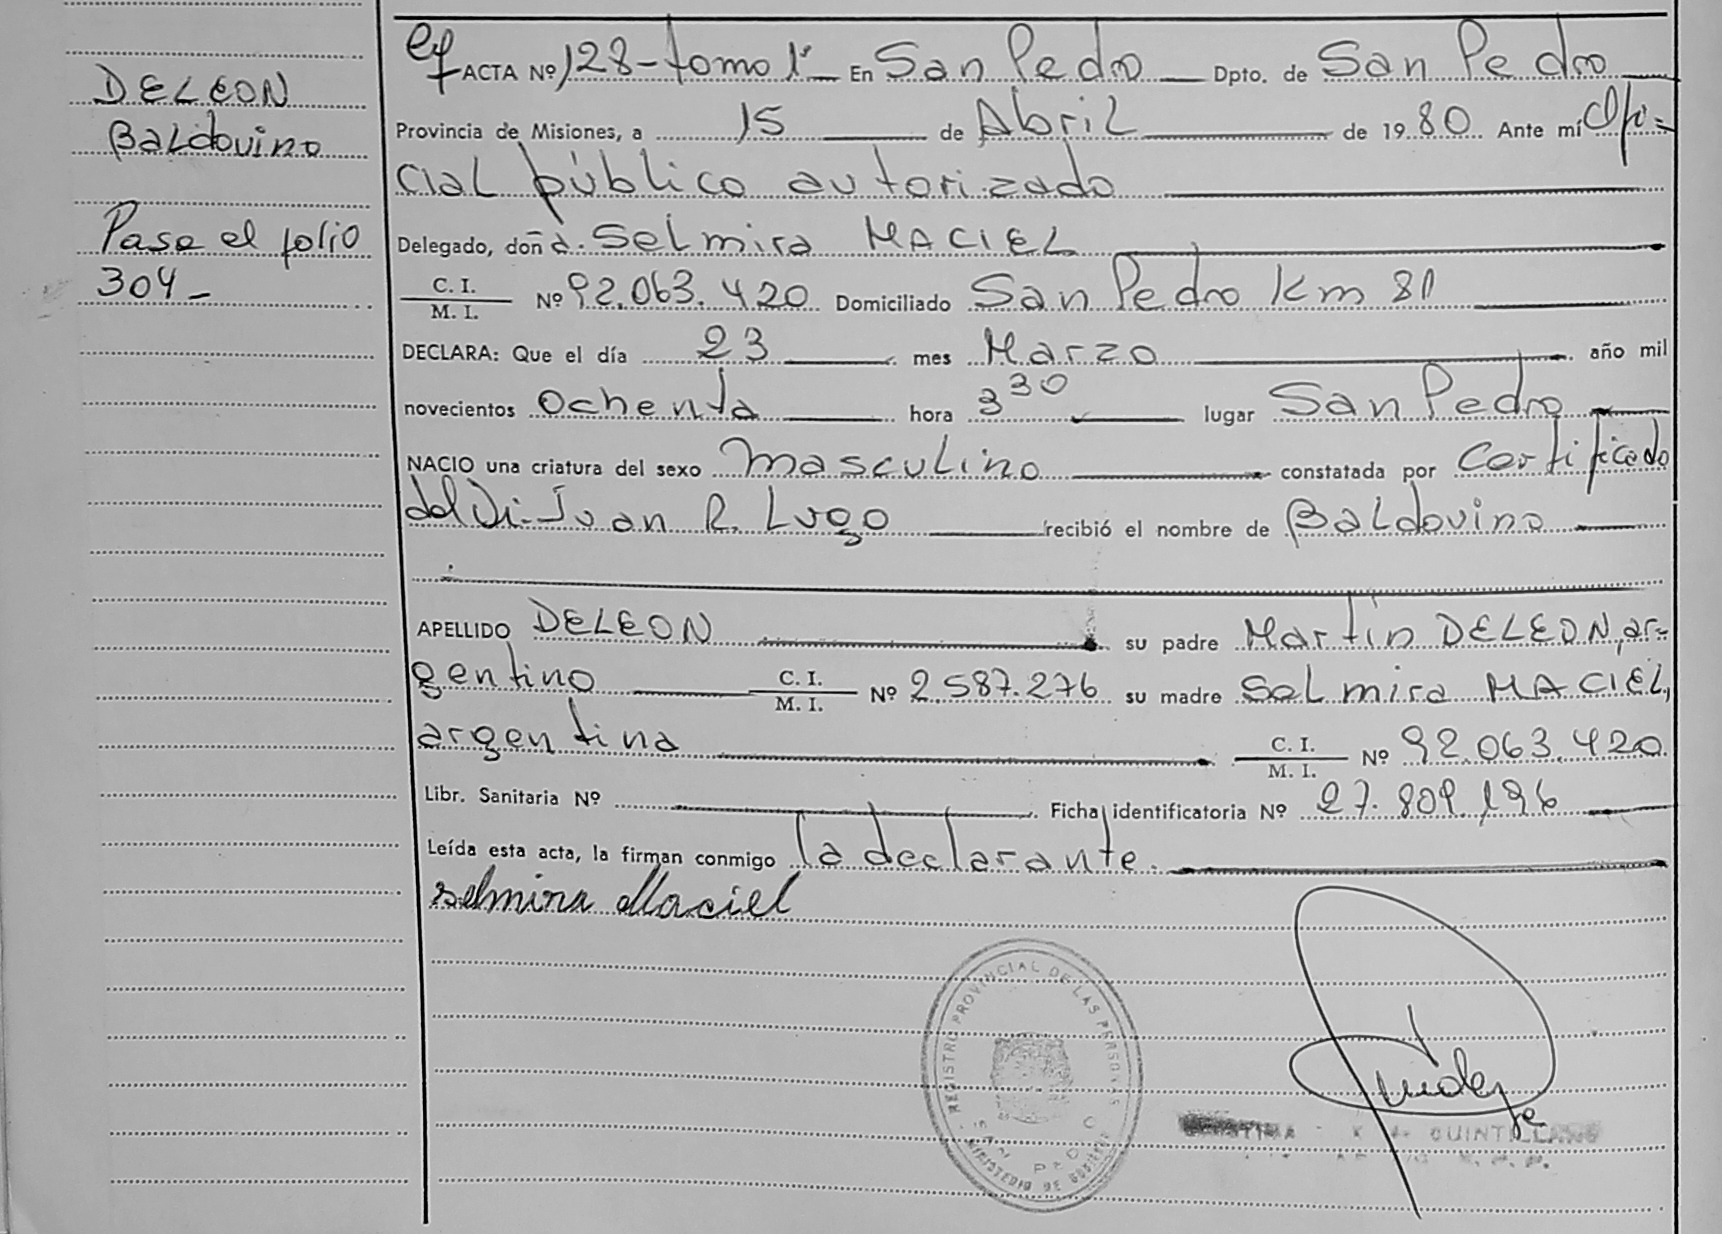 DELEON
Baldovino
Pase el folio
304-
ACTA Nº 128-tomo 1º En San Pedro Dpto. de San Pedro
Provincia de Misiones, a 15 de Abril de 1980 Ante mí Ofi-
cial público autorizado
Delegado, doña Selmira MACIEL
C. I. / M. I. Nº 92.063.420 Domiciliado San Pedro Km 80
DECLARA: Que el día 23 mes Marzo año mil
novecientos ochenta hora 3 30 lugar San Pedro
NACIO una criatura del sexo masculino constatada por Certificado
del Dr. Juan R. Lugo recibió el nombre de Baldovino
APELLIDO DELEON su padre Martín DELEON, ar-
gentino C. I. / M. I. Nº 2.587.276 su madre Selmira MACIEL,
argentina C. I. / M. I. Nº 92.063.420
Libr. Sanitaria Nº Ficha identificatoria Nº 27.809.196
Leída esta acta, la firman conmigo la declarante.
Selmira Maciel
REGISTRO PROVINCIAL DE LAS PERSONAS
SAN PEDRO
MINISTERIO DE GOBIERNO
QUINTILLANO